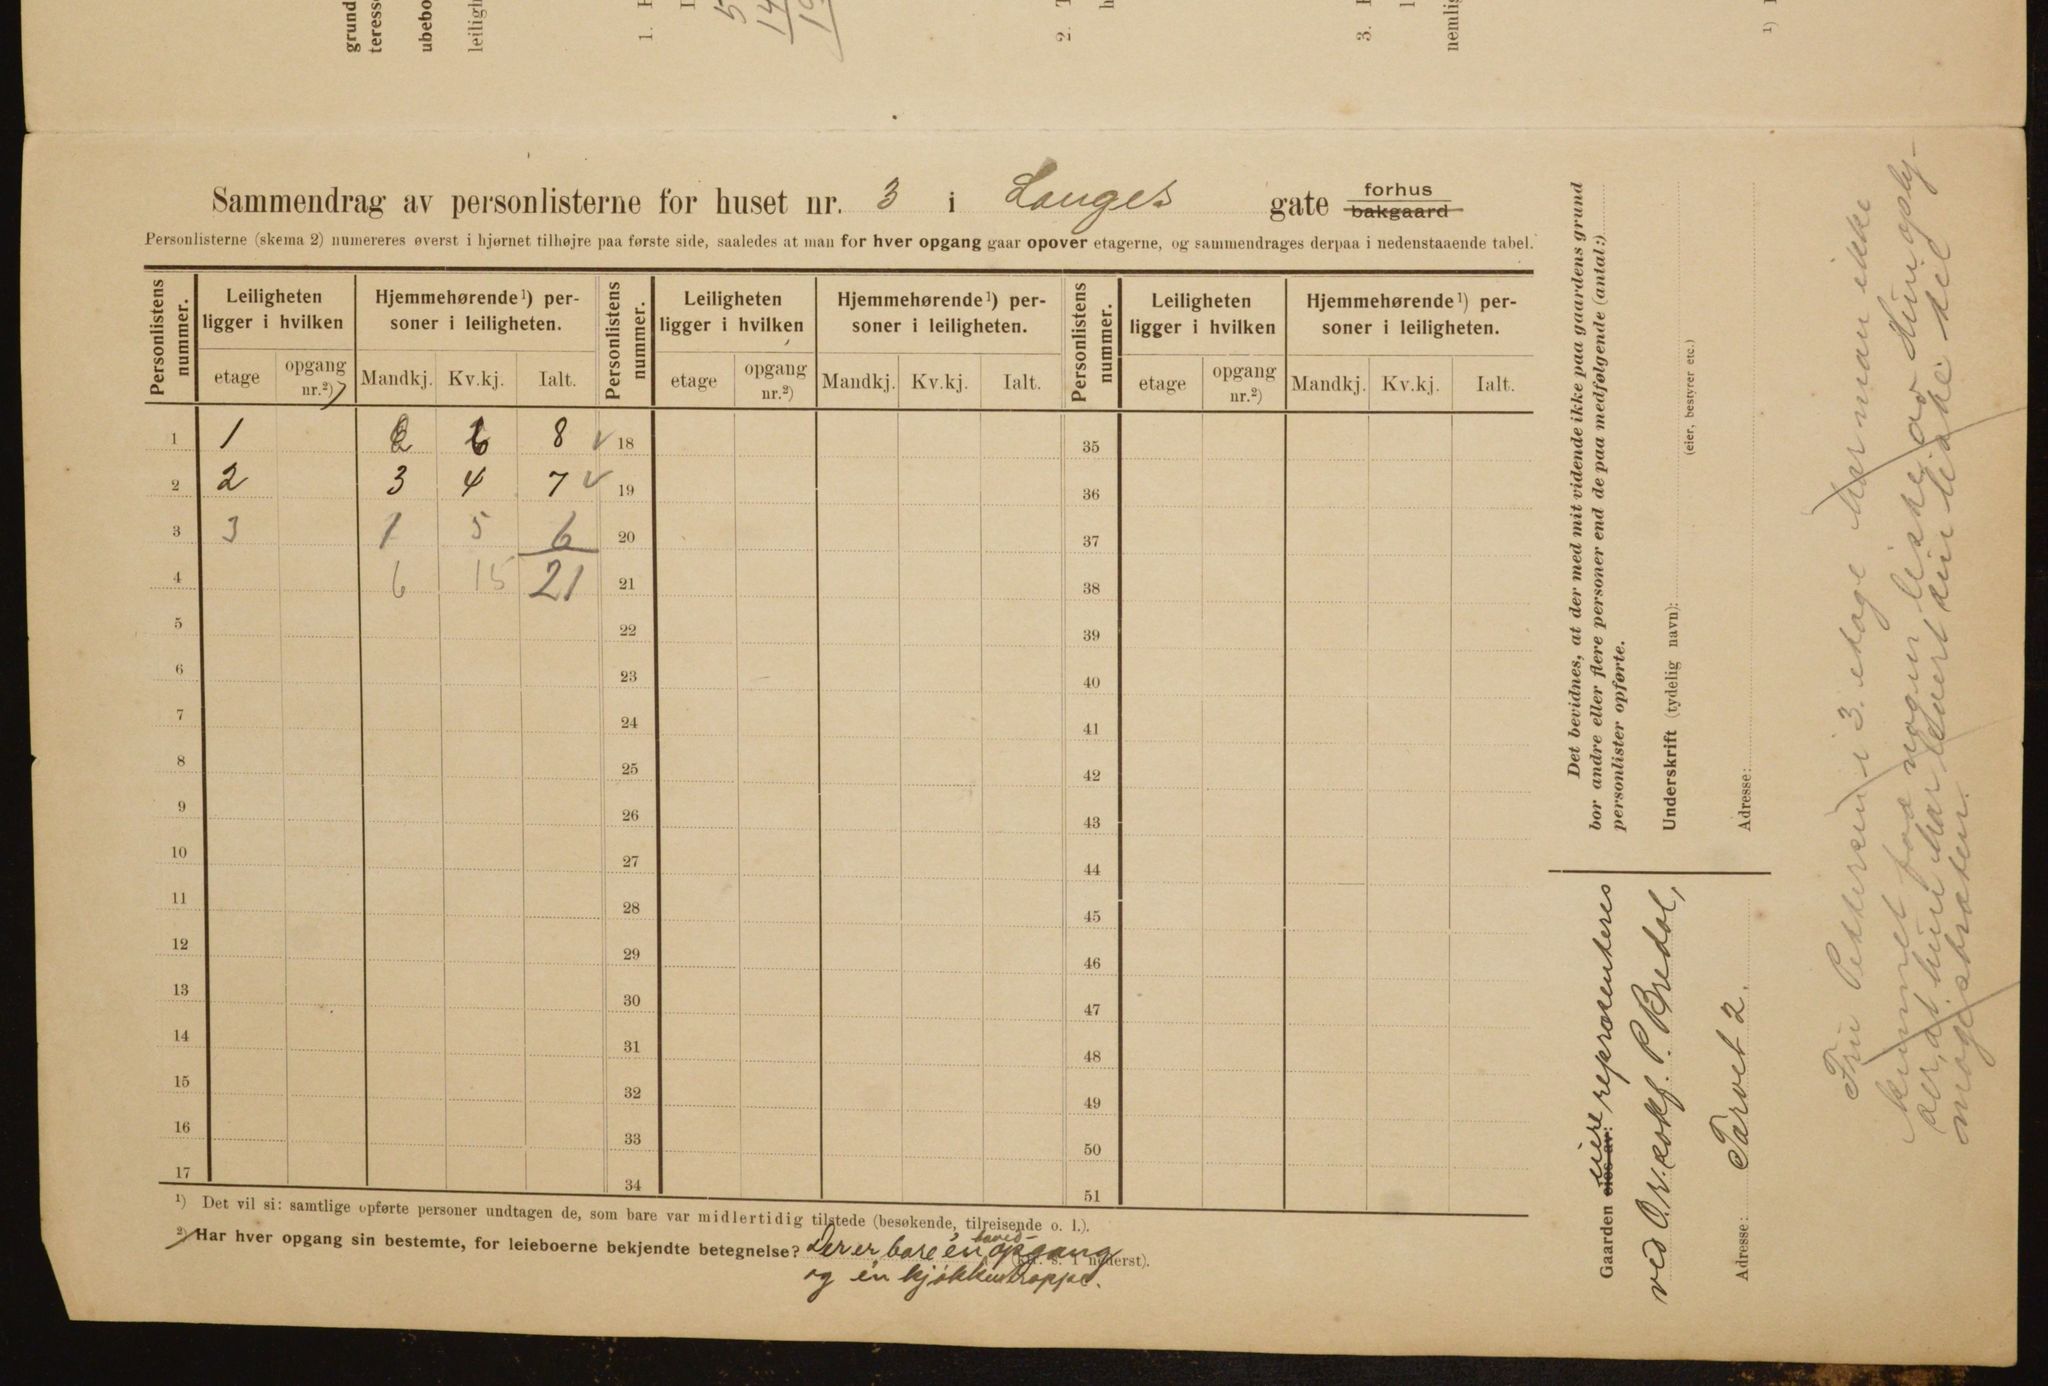 grund
teresse
ubebo
leiligh
1.
5
14
19
2.
3.
nemlig
1)
Sammendrag av personlisterne for huset nr. 3 i Langes gate forhus bakgaard
Personlisterne (skema 2) numereres øverst i hjørnet tilhøjre paa første side, saaledes at man for hver opgang gaar opover etagerne, og sammendrages derpaa i nedenstaaende tabel.
Personlistens nummer. Leiligheten ligger i hvilken Hjemmehørende¹) personer i leiligheten. Personlistens nummer. Leiligheten ligger i hvilken Hjemmehørende¹) personer i leiligheten. Personlistens nummer. Leiligheten ligger i hvilken Hjemmehørende¹) personer i leiligheten.
etage opgang nr.²) Mandkj. Kv.kj. Ialt. etage opgang nr.²) Mandkj. Kv.kj. Ialt. etage opgang nr.²) Mandkj. Kv.kj. Ialt.
1 1 2 6 8 18 35
2 2 3 4 7 19 36
3 3 1 5 6 20 37
4 6 15 21 21 38
5 22 39
6 23 40
7 24 41
8 25 42
9 26 43
10 27 44
11 28 45
12 29 46
13 30 47
14 31 48
15 32 49
16 33 50
17 34 51
¹) Det vil si: samtlige opførte personer undtagen de, som bare var midlertidig tilstede (besøkende, tilreisende o. l.).
²) Har hver opgang sin bestemte, for leieboerne bekjendte betegnelse? Der er bare én hoved-opgang
(kfr. s. 1 nederst).
og én kjøkkentrappe.
Det bevidnes, at der med mit vidende ikke paa gaardens grund
bor andre eller flere personer end de paa medfølgende (antal:)
personlister opførte.
Underskrift (tydelig navn):
(eier, bestyrer etc.)
Adresse:
Gaarden eies av: eiere repræsenteres
ved O.r.sakf. P. Bredal,
Adresse: Torvet 2.
Fru Pettersen i 3. etage har man ikke
kunnet faa nogen liste av. Hun oply-
ser, at hun har levert sin liste til
magistraten.